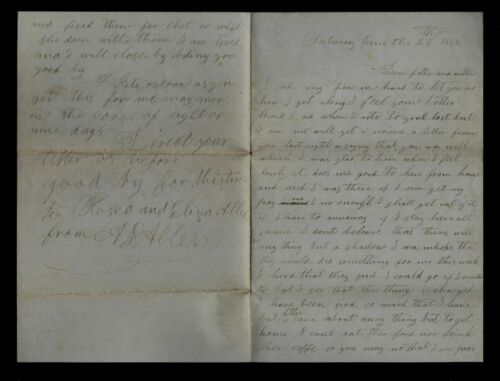 The
Saturday June the 28 1862
Dear father and mother
I take my pen in hand to let you no
how I get along I feel some better
than I did when I rote to you last but I
am not well yet I received a letter from
you last nyth asaying that you was well
which I was glad to hear when I feel
lonly it does me good to here from home
and wish I was there if I ever get my
pay and no enough I shall get out of it
if I have to runaway if I stay here all
I dont beleave that there will
any thing but a shadow I was inhopes that
they would do something for me this week
I herd that they sed I could go if I wanted
to but I see that the thing is changed
I have been sick so much that I have
but little care about anny thing but to get
home I cant eat ther food nor drink
ther coffe so you may no that I am poor
and fixed them for that or what
she doen withe them I am tired
and I will close by biding you
good by
Rite as soon as you
get this for we may move
in the corse of eight or
nine days
I direct your
letter as before
good by for this time
to Hosea and Eliza Allen
from A Allen